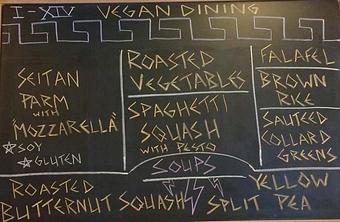 I-XIV VEGAN DINING
SEITAN
PARM
WITH
"MOZZARELLA"
☆SOY
☆GLUTEN
ROASTED
VEGETABLES
SPAGHETTI
SQUASH
WITH PESTO
FALAFEL
BROWN
RICE
SAUTEED
COLLARD
GREENS
SOUPS
ROASTED
BUTTERNUT SQUASH
YELLOW
SPLIT PEA